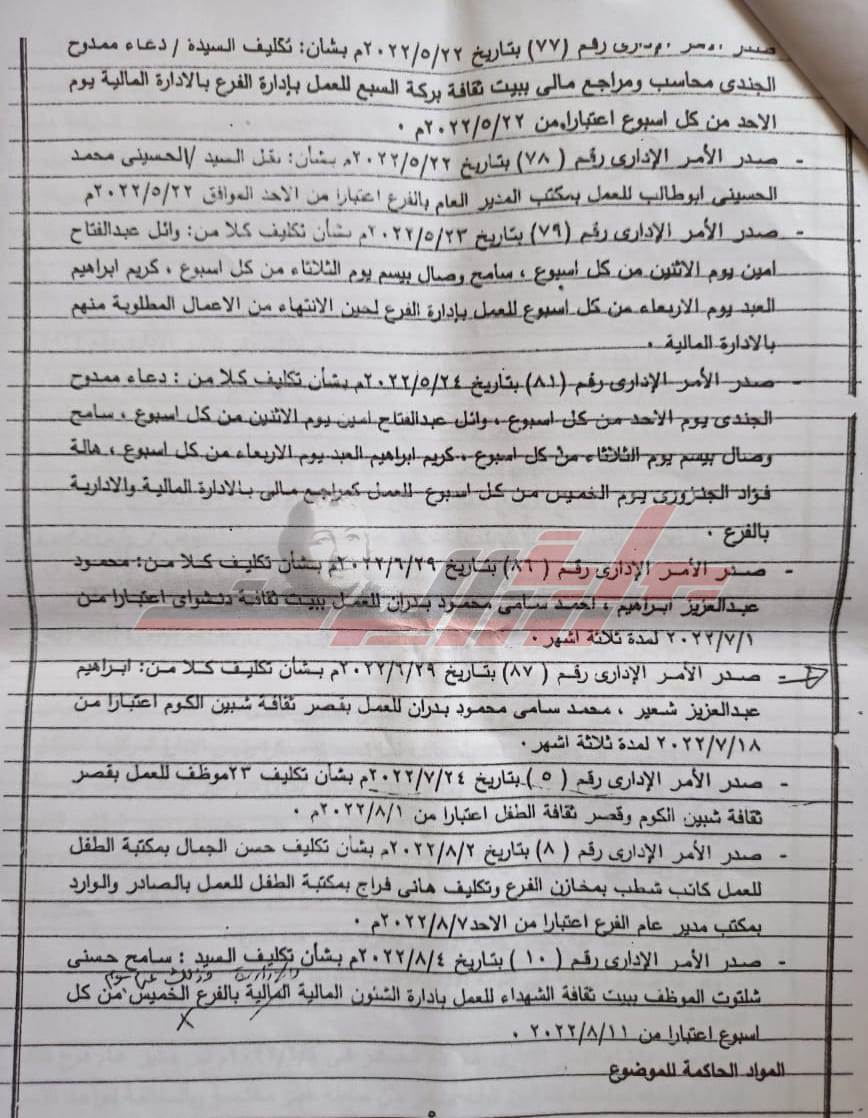 صدر الأمر الإدارى رقم (٧٧) بتاريخ ٢٠٢٢/٥/٢٢م بشأن: تكليف السيدة / دعاء ممدوح
الجندى محاسب ومراجع مالى ببيت ثقافة بركة السبع للعمل بإدارة الفرع بالادارة المالية يوم
الاحد من كل اسبوع اعتبارا من ٢٠٢٢/٥/٢٢م .
- صدر الأمر الإدارى رقم ( ٧٨) بتاريخ ٢٠٢٢/٥/٢٢م بشأن: نقل السيد /الحسينى محمد
الحسينى ابوطالب للعمل بمكتب المدير العام بالفرع اعتبارا من الاحد الموافق ٢٠٢٢/٥/٢٢م
- صدر الأمر الإدارى رقم (٧٩) بتاريخ ٢٠٢٢/٥/٢٣م بشأن تكليف كلا من: وائل عبدالفتاح
امين يوم الاثنين من كل اسبوع ، سامح وصال بيسم يوم الثلاثاء من كل اسبوع ، كريم ابراهيم
العبد يوم الاربعاء من كل اسبوع للعمل بإدارة الفرع لحين الانتهاء من الاعمال المطلوبة منهم
بالادارة المالية .
- صدر الأمر الإدارى رقم (٨١) بتاريخ ٢٠٢٢/٥/٢٤م بشأن تكليف كلا من : دعاء ممدوح
الجندى يوم الاحد من كل اسبوع ، وائل عبدالفتاح امين يوم الاثنين من كل اسبوع ، سامح
وصال بيسم يوم الثلاثاء من كل اسبوع ، كريم ابراهيم العبد يوم الاربعاء من كل اسبوع ، هالة
فؤاد الجنزورى يوم الخميس من كل اسبوع للعمل كمراجع مالى بالادارة المالية والادارية
بالفرع .
- صدر الأمر الإدارى رقم ( ٨٦) بتاريخ ٢٠٢٢/٦/٢٩م بشأن تكليف كلا من: محمود
عبدالعزيز ابراهيم ، احمد سامى محمود بدران للعمل ببيت ثقافة دنشواى اعتبارا من
٢٠٢٢/٧/١ لمدة ثلاثة اشهر .
- صدر الأمر الإدارى رقم ( ٨٧) بتاريخ ٢٠٢٢/٦/٢٩م بشأن تكليف كلا من: ابراهيم
عبدالعزيز شعير ، محمد سامى محمود بدران للعمل بقصر ثقافة شبين الكوم اعتبارا من
٢٠٢٢/٧/١٨ لمدة ثلاثة اشهر .
- صدر الأمر الإدارى رقم ( ٥ ) بتاريخ ٢٠٢٢/٧/٢٤م بشأن تكليف ٢٣موظف للعمل بقصر
ثقافة شبين الكوم وقصر ثقافة الطفل اعتبارا من ٢٠٢٢/٨/١م .
- صدر الأمر الإدارى رقم ( ٨ ) بتاريخ ٢٠٢٢/٨/٢م بشأن تكليف حسن الجمال بمكتبة الطفل
للعمل كاتب شطب بمخازن الفرع وتكليف هانى فراج بمكتبة الطفل للعمل بالصادر والوارد
بمكتب مدير عام الفرع اعتبارا من الاحد٢٠٢٢/٨/٧م .
- صدر الأمر الإدارى رقم ( ١٠ ) بتاريخ ٢٠٢٢/٨/٤م بشأن تكليف السيد : سامح حسنى
شلتوت الموظف ببيت ثقافة الشهداء للعمل بإدارة الشئون المالية المالية بالفرع الخميس من كل
اسبوع اعتبارا من ٢٠٢٢/٨/١١ .
المواد الحاكمة للموضوع
٥